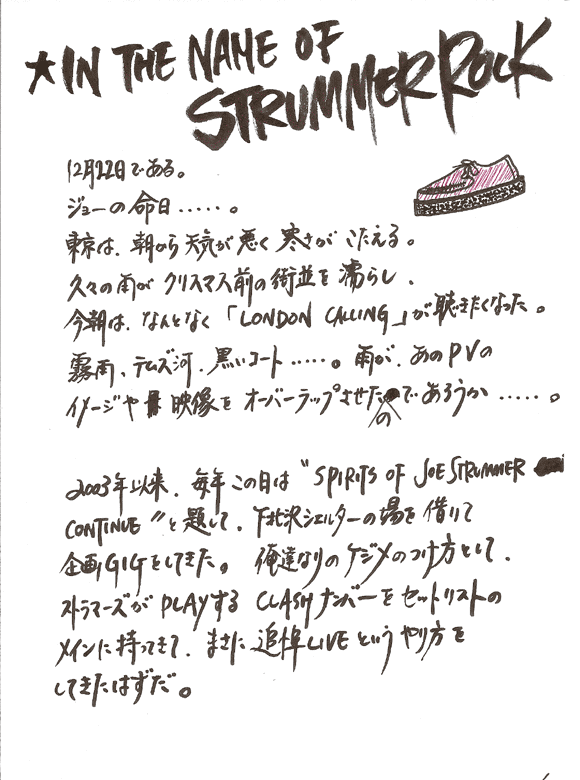 ★IN THE NAME OF
STRUMMER ROCK
12月22日である。
ジョーの命日……。
東京は、朝から天気が悪く寒さがこたえる。
久々の雨がクリスマス前の街並を濡らし、
今朝は、なんとなく「LONDON CALLING」が聴きたくなった。
霧雨、テムズ河、黒いコート……。雨が、あのPVの
イメージや映像をオーバーラップさせたのであろうか……。
2003年以来、毎年この日は〝SPIRITS OF JOE STRUMMER
CONTINUE〞と題して、下北沢シェルターの場を借りて
企画GIGをしてきた。俺達なりのケジメのつけ方として、
ストラマーズがPLAYするCLASHナンバーをセットリストの
メインに持ってきて、まさに追悼LIVEというやり方を
してきたはずだ。